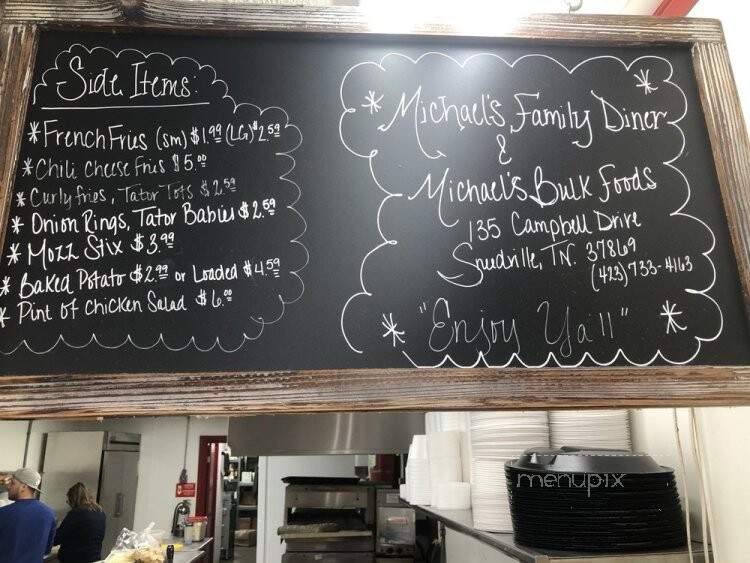 Side Items:
* French Fries (sm) $1.99 (LG) $2.59
* Chili Cheese Fries $5.00
* Curly fries, Tator Tots $2.59
* Onion Rings, Tator Babies $2.59
* Mozz Stix $3.99
* Baked Potato $2.99 or Loaded $4.59
* Pint of Chicken Salad $6.00
* Michael's Family Diner *
&
Michael's Bulk Foods
135 Campbell Drive
Sneedville, TN. 37869
(423) 733-4163
* "Enjoy Ya'll" *
menupix